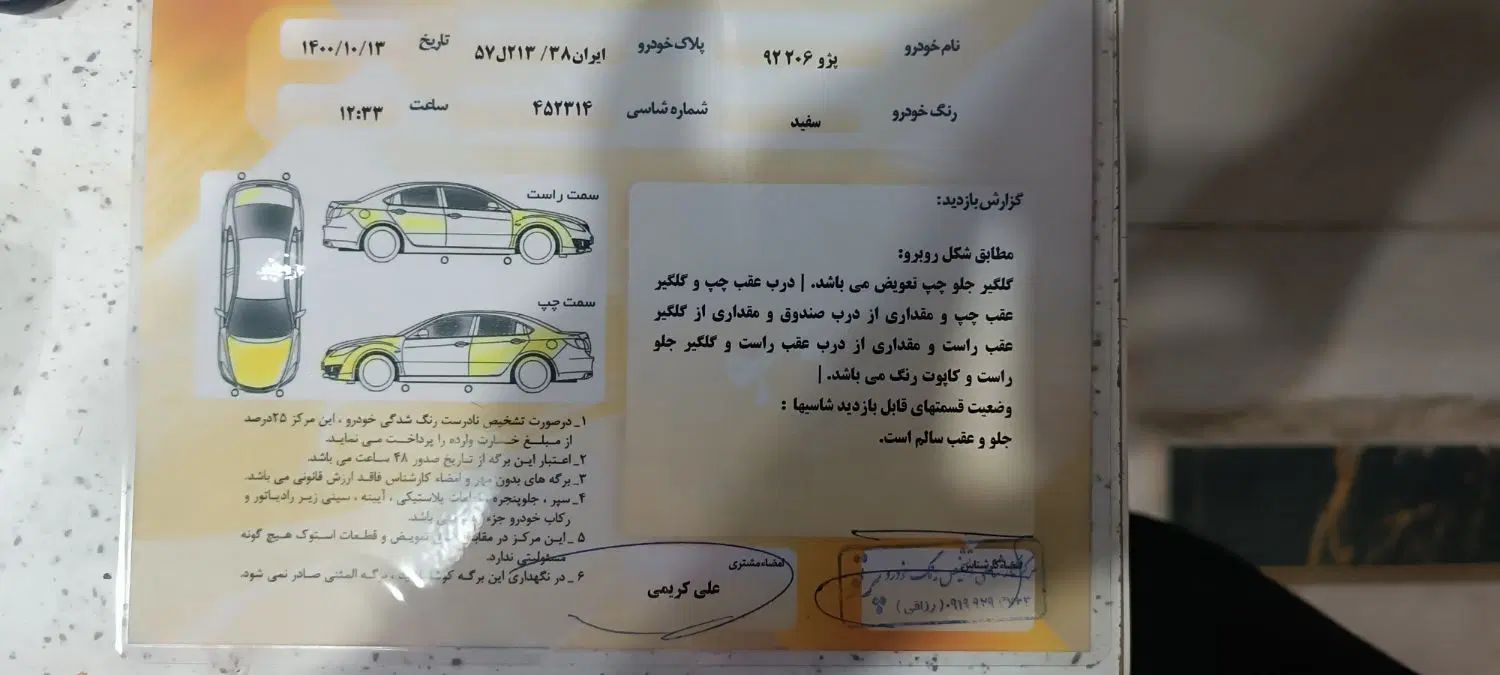 نام خودرو پژو ۲۰۶ ۹۲ پلاک خودرو ایران۳۸/ ۲۱۳ل۵۷ تاریخ ۱۴۰۰/۱۰/۱۳
رنگ خودرو سفید شماره شاسی ۴۵۲۳۱۴ ساعت ۱۲:۳۳
گزارش بازدید:
مطابق شکل روبرو:
گلگیر جلو چپ تعویض می باشد. | درب عقب چپ و گلگیر
عقب چپ و مقداری از درب صندوق و مقداری از گلگیر
عقب راست و مقداری از درب عقب راست و گلگیر جلو
راست و کاپوت رنگ می باشد. |
وضعیت قسمتهای قابل بازدید شاسیها :
جلو و عقب سالم است.
سمت راست
سمت چپ
۱_ درصورت تشخیص نادرست رنگ شدگی خودرو ، این مرکز ۲۵درصد
از مبلغ خسارت وارده را پرداخت می نماید.
۲_ اعتبار این برگه از تاریخ صدور ۴۸ ساعت می باشد.
۳_ برگه های بدون مهر و امضاء کارشناس فاقد ارزش قانونی می باشد.
۴_ سپر ، جلوپنجره، قطعات پلاستیکی ، آیینه ، سینی زیر رادیاتور و
رکاب خودرو جزء باشد.
۵_ این مرکز در مقابل تعویض و قطعات استوک هیچ گونه
مسئولیتی ندارد.
۶_ در نگهداری این برگه برگه المثنی صادر نمی شود.
امضاء کارشناس
رنگ خودرو
(رزاقی)
امضاء مشتری
علی کریمی